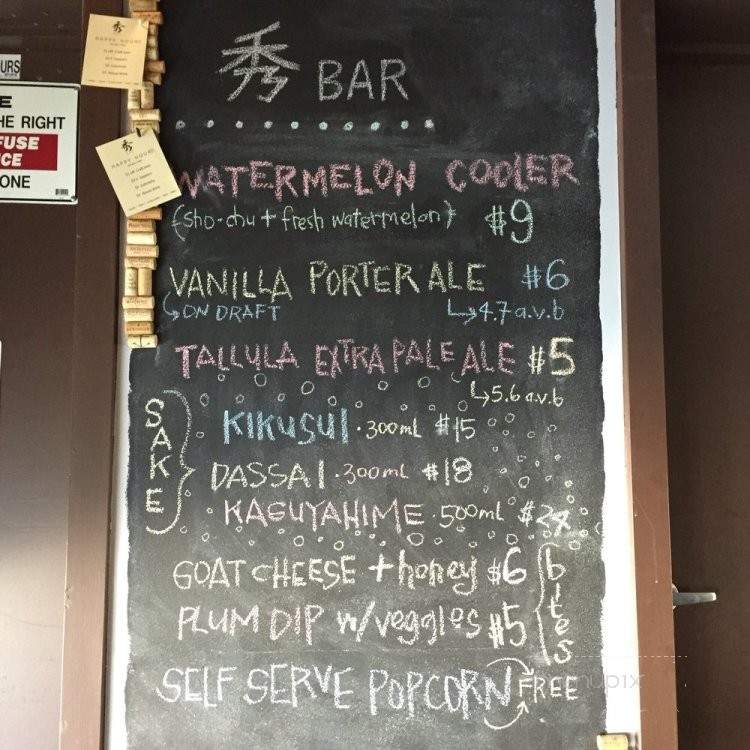 秀 BAR
WATERMELON COOLER
(sho-chu + fresh watermelon) $9
VANILLA PORTER ALE $6
ON DRAFT 4.7 a.v.b
TALLULA EXTRA PALE ALE $5
5.6 a.v.b
SAKE
KIKUSUI · 300mL $15
DASSAI · 300mL $18
KAGUYAHIME · 500mL
GOAT CHEESE + honey $6
PLUM DIP w/veggles $5
bites
SELF SERVE POPCORN FREE
秀
HAPPY HOUR
秀
HAPPY HOUR
URS
E
THE RIGHT
FUSE
ICE
ONE